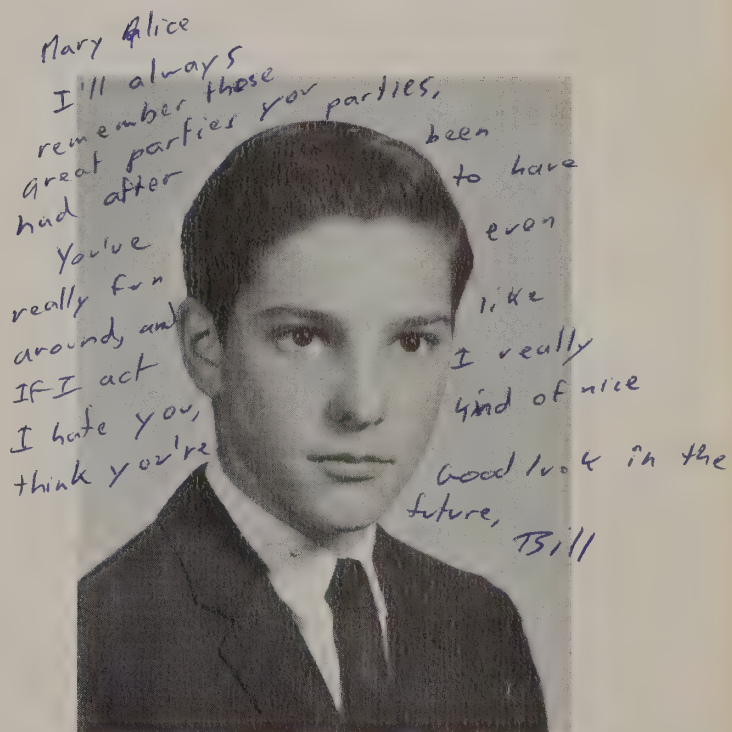 Mary Alice
I'll always
remember those
great parties your parties,
had after
You've been
really fun to have
around, and even
If I act like
I hate you, I really
think you're kind of nice
Good luck in the
future,
Bill